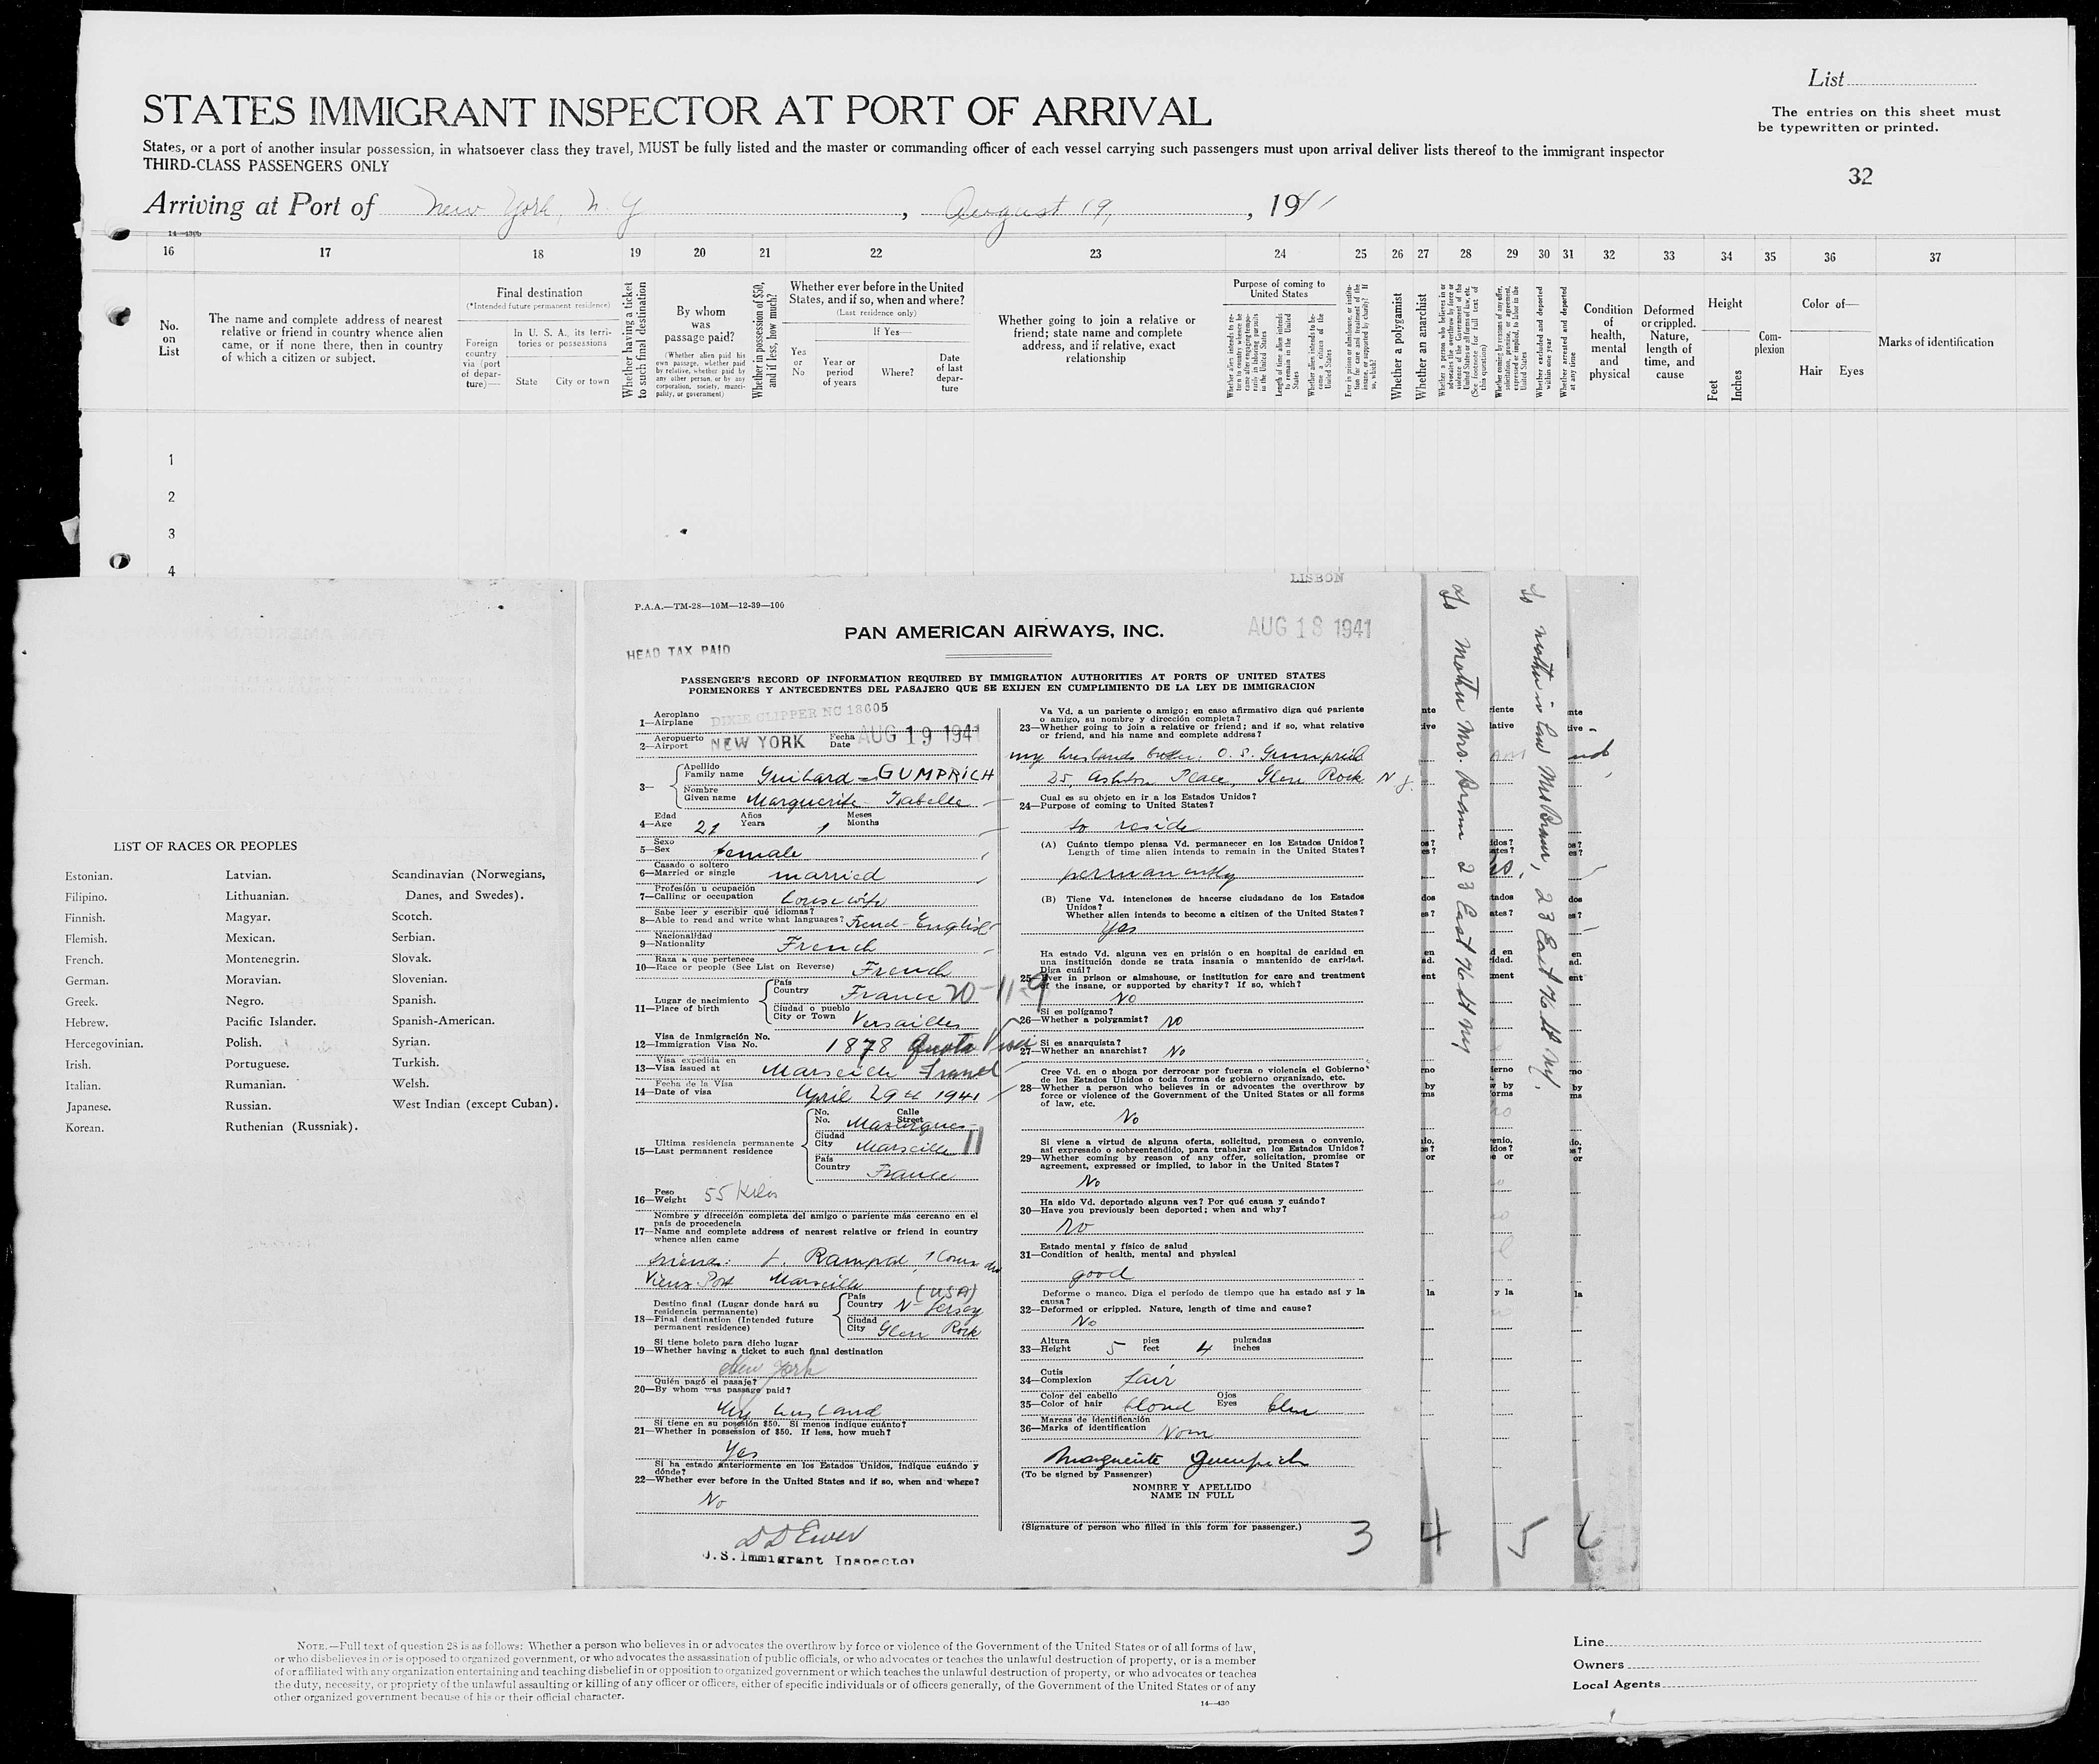 List
STATES IMMIGRANT INSPECTOR AT PORT OF ARRIVAL
The entries on this sheet must
be typewritten or printed.
States, or a port of another insular possession, in whatsoever class they travel, MUST be fully listed and the master or commanding officer of each vessel carrying such passengers must upon arrival deliver lists thereof to the immigrant inspector
THIRD-CLASS PASSENGERS ONLY
32
Arriving at Port of New York, N. Y , August 19, , 1941
14—430b
16 17 18 19 20 21 22 23 24 25 26 27 28 29 30 31 32 33 34 35 36 37
No.
on
List
The name and complete address of nearest
relative or friend in country whence alien
came, or if none there, then in country
of which a citizen or subject.
Final destination
(*Intended future permanent residence)
Foreign
country
via (port
of depar-
ture)—
In U. S. A., its terri-
tories or possessions
State City or town
Whether having a ticket
to such final destination
By whom
was
passage paid?
(Whether alien paid his
own passage, whether paid
by relative, whether paid by
any other person, or by any
corporation, society, munici-
pality, or government)
Whether in possession of $50,
and if less, how much?
Whether ever before in the United
States, and if so, when and where?
(Last residence only)
If Yes—
Yes
or
No
Year or
period
of years
Where?
Date
of last
depar-
ture
Whether going to join a relative or
friend; state name and complete
address, and if relative, exact
relationship
Purpose of coming to
United States
Whether alien intends to re-
turn to country whence he
came after engaging tempo-
rarily in laboring pursuits
in the United States
Length of time alien intends
to remain in the United
States
Whether alien intends to be-
come a citizen of the
United States
Ever in prison or almshouse, or institu-
tion for care and treatment of the
insane, or supported by charity? If
so, which?
Whether a polygamist
Whether an anarchist
Whether a person who believes in or
advocates the overthrow by force or
violence of the Government of the
United States or all forms of law, etc.
(See footnote for full text of
this question)
Whether coming by reason of any offer,
solicitation, promise, or agreement,
expressed or implied, to labor in the
United States
Whether excluded and deported
within one year
Whether arrested and deported
at any time
Condition
of
health,
mental
and
physical
Deformed
or crippled.
Nature,
length of
time, and
cause
Height
Feet
Inches
Com-
plexion
Color of—
Hair Eyes
Marks of identification
1
2
3
4
LIST OF RACES OR PEOPLES
Estonian. Latvian. Scandinavian (Norwegians,
Filipino. Lithuanian. Danes, and Swedes).
Finnish. Magyar. Scotch.
Flemish. Mexican. Serbian.
French. Montenegrin. Slovak.
German. Moravian. Slovenian.
Greek. Negro. Spanish.
Hebrew. Pacific Islander. Spanish-American.
Hercegovinian. Polish. Syrian.
Irish. Portuguese. Turkish.
Italian. Rumanian. Welsh.
Japanese. Russian. West Indian (except Cuban).
Korean. Ruthenian (Russniak).
LISBON
P.A.A.—TM-28—10M—12-39—100
PAN AMERICAN AIRWAYS, INC.
AUG 18 1941
HEAD TAX PAID
PASSENGER'S RECORD OF INFORMATION REQUIRED BY IMMIGRATION AUTHORITIES AT PORTS OF UNITED STATES
PORMENORES Y ANTECEDENTES DEL PASAJERO QUE SE EXIJEN EN CUMPLIMIENTO DE LA LEY DE IMMIGRACION
Aeroplano
1—Airplane DIXIE CLIPPER NC 18605
Aeropuerto Fecha
2—Airport NEW YORK Date AUG 19 1941
3—
Apellido
Family name Guibard = GUMPRICH
Nombre
Given name Marguerite - Isabelle
Edad Años Meses
4—Age 21 Years 1 Months
Sexo
5—Sex female
Casado o soltero
6—Married or single married
Profesión u ocupación
7—Calling or occupation housewife
Sabe leer y escribir qué idiomas?
8—Able to read and write what languages? French - English
Nacionalidad
9—Nationality French
Raza a que pertenece
10—Race or people (See List on Reverse) French
11—Lugar de nacimiento
Place of birth
País
Country France 20-11-9
Ciudad o pueblo
City or Town Versailles
Visa de Inmigración No.
12—Immigration Visa No. 1878 Quota Visa
Visa expedida en
13—Visa issued at Marseille France
Fecha de la Visa
14—Date of visa April 29th 1941
Ultima residencia permanente
15—Last permanent residence
No. Calle
No. Street Mazargues
Ciudad
City Marseille
País
Country France
Peso
16—Weight 55 Kilos
Nombre y dirección completa del amigo o pariente más cercano en el
país de procedencia
17—Name and complete address of nearest relative or friend in country
whence alien came
friend: Rampal, 1 Cours du
Vieux Port Marseille
Destino final (Lugar donde hará su
residencia permanente)
18—Final destination (Intended future
permanent residence)
País
Country N-Jersey (USA)
Ciudad
City Glen Rock
Si tiene boleto para dicho lugar
19—Whether having a ticket to such final destination
New York
Quién pagó el pasaje?
20—By whom was passage paid?
My husband
Si tiene en su posesión $50. Si menos indique cuánto?
21—Whether in possession of $50. If less, how much?
Yes
Si ha estado anteriormente en los Estados Unidos, indique cuándo y
dónde?
22—Whether ever before in the United States and if so, when and where?
No
D D Ewer
U.S. Immigrant Inspector
Va Vd. a un pariente o amigo; en caso afirmativo diga qué pariente
o amigo, su nombre y dirección completa?
23—Whether going to join a relative or friend; and if so, what relative
or friend, and his name and complete address?
my husbands brother. O. S. Gumprich
25, Ashton Place, Glen Rock N J.
Cual es su objeto en ir a los Estados Unidos?
24—Purpose of coming to United States?
to reside
(A) Cuánto tiempo piensa Vd. permanecer en los Estados Unidos?
Length of time alien intends to remain in the United States?
permanently
(B) Tiene Vd. intenciones de hacerse ciudadano de los Estados
Unidos?
Whether alien intends to become a citizen of the United States?
Yes
Ha estado Vd. alguna vez en prisión o en hospital de caridad en
una institución donde se trata insania o mantenido de caridad.
Diga cuál?
25—Ever in prison or almshouse, or institution for care and treatment
of the insane, or supported by charity? If so, which?
No
Si es polígamo?
26—Whether a polygamist? No
Si es anarquista?
27—Whether an anarchist? No
Cree Vd. en o aboga por derrocar por fuerza o violencia el Gobierno
de los Estados Unidos o toda forma de gobierno organizado, etc.
28—Whether a person who believes in or advocates the overthrow by
force or violence of the Government of the United States or all forms
of law, etc.
No
Si viene a virtud de alguna oferta, solicitud, promesa o convenio,
así expresado o sobreentendido, para trabajar en los Estados Unidos?
29—Whether coming by reason of any offer, solicitation, promise or
agreement, expressed or implied, to labor in the United States?
No
Ha sido Vd. deportado alguna vez? Por qué causa y cuándo?
30—Have you previously been deported; when and why?
No
Estado mental y físico de salud
31—Condition of health, mental and physical
good
Deforme o manco. Diga el período de tiempo que ha estado así y la
causa?
32—Deformed or crippled. Nature, length of time and cause?
No
Altura pies pulgadas
33—Height 5 feet 4 inches
Cutis
34—Complexion fair
Color del cabello Ojos
35—Color of hair blond Eyes blue
Marcas de identificación
36—Marks of identification None
Marguerite Gumprich
(To be signed by Passenger)
NOMBRE Y APELLIDO
NAME IN FULL
(Signature of person who filled in this form for passenger.)
3 4 5 6
To Mother Mrs. Braun 23 East 76 St NY
To mother in law Mrs Braun, 23 East 76 St NY.
NOTE.—Full text of question 28 is as follows: Whether a person who believes in or advocates the overthrow by force or violence of the Government of the United States or of all forms of law,
or who disbelieves in or is opposed to organized government, or who advocates the assassination of public officials, or who advocates or teaches the unlawful destruction of property, or is a member
of or affiliated with any organization entertaining and teaching disbelief in or opposition to organized government or which teaches the unlawful destruction of property, or who advocates or teaches
the duty, necessity, or propriety of the unlawful assaulting or killing of any officer or officers, either of specific individuals or of officers generally, of the Government of the United States or of any
other organized government because of his or their official character.
14—430
Line
Owners
Local Agents